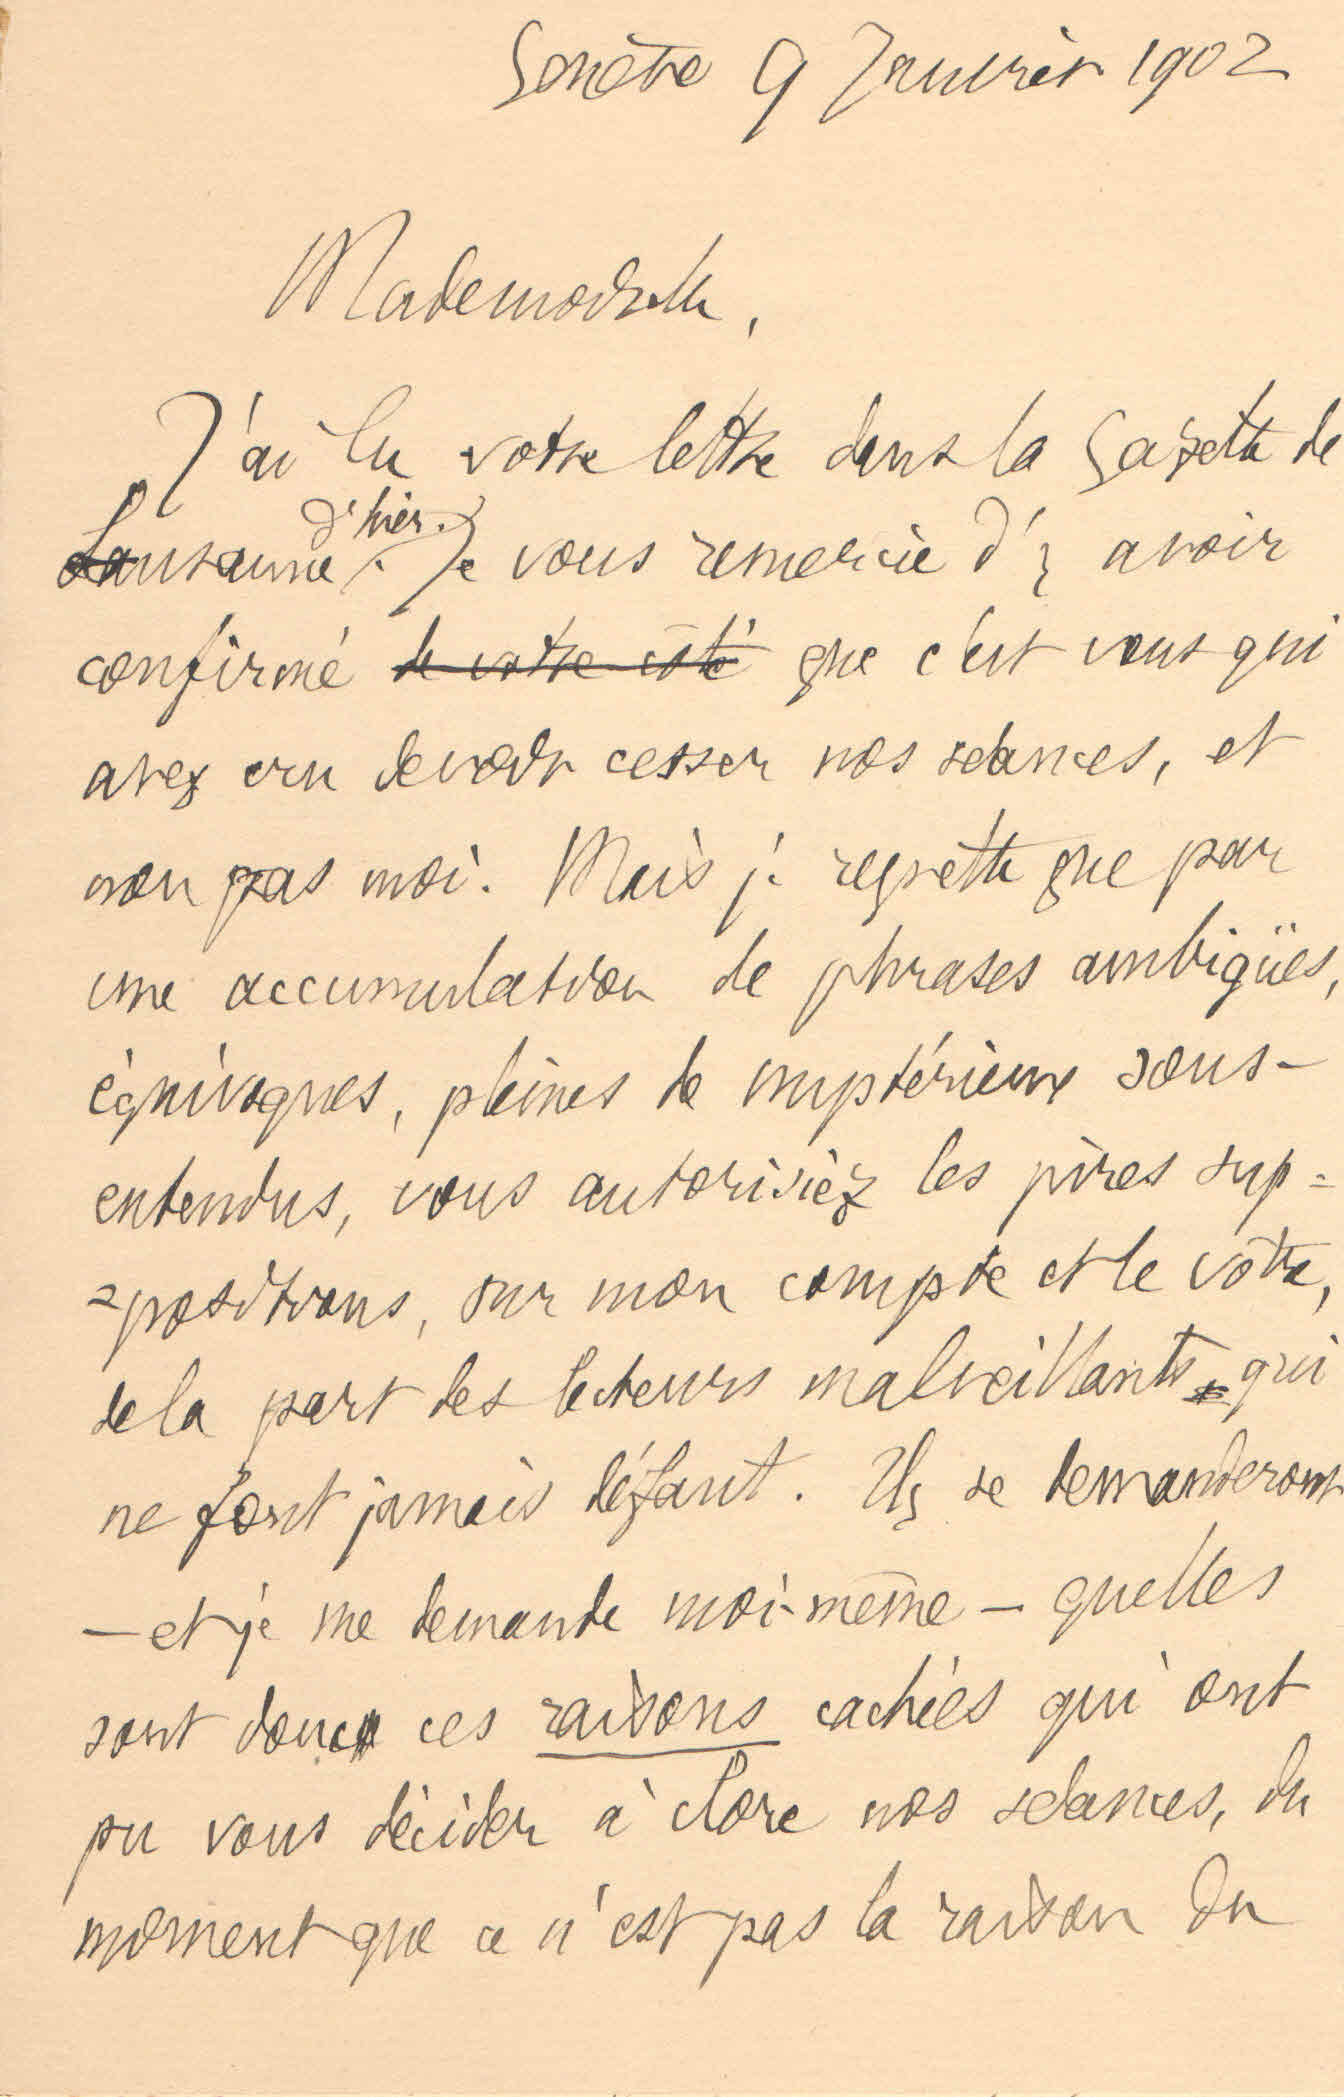 Genève 9 Janvier 1902
Mademoiselle,
J'ai lu votre lettre dans la Gazette de
Lausanne d'hier. Je vous remercie d'y avoir
confirmé de votre côté que c'est vous qui
avez cru devoir cesser nos séances, et
non pas moi. Mais je regrette que par
une accumulation de phrases ambigües,
équivoques, pleines de mystérieux sous-
entendus, vous autorisiez les pires sup=
=positions, sur mon compte et le vôtre,
de la part des lecteurs malveillants qui
ne font jamais défaut. Ils se demanderont
– et je me demande moi-même – quelles
sont donc ces raisons cachées qui ont
pu vous décider à clore nos séances, du
moment que ce n'est pas la raison du